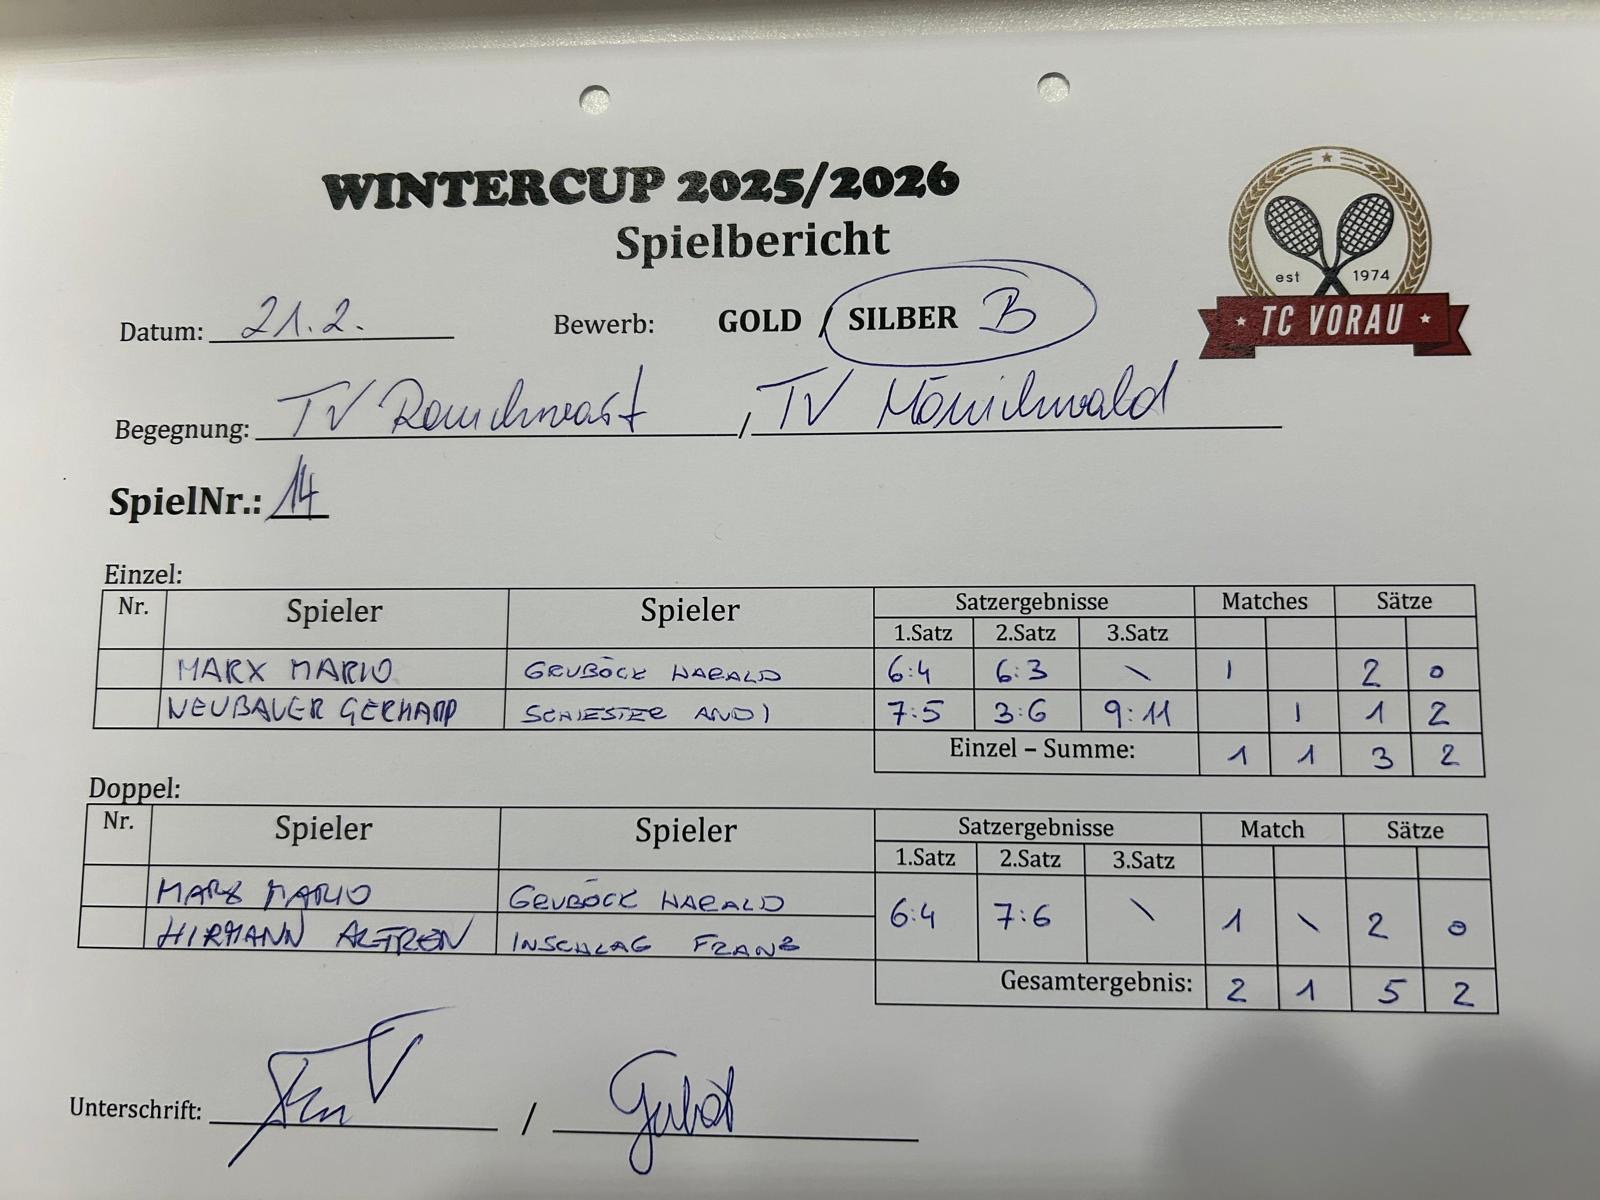 WINTERCUP 2025/2026
Spielbericht
est 1974
TC VORAU
Datum: 21.2. Bewerb: GOLD / SILBER B
Begegnung: TV Rauchwart / TV Mönichwald
SpielNr.: 14
Einzel:
Nr. Spieler Spieler Satzergebnisse Matches Sätze
1.Satz 2.Satz 3.Satz
MARX MARIO GRUBÖCK HARALD 6:4 6:3 \ 1 2 0
NEUBAUER GERHARD SCHIESTER ANDI 7:5 3:6 9:11 1 1 2
Einzel – Summe: 1 1 3 2
Doppel:
Nr. Spieler Spieler Satzergebnisse Match Sätze
1.Satz 2.Satz 3.Satz
MARX MARIO GRUBÖCK HARALD 6:4 7:6 \ 1 \ 2 0
HIRMANN INSCHLAG FRANZ
Gesamtergebnis: 2 1 5 2
Unterschrift: /